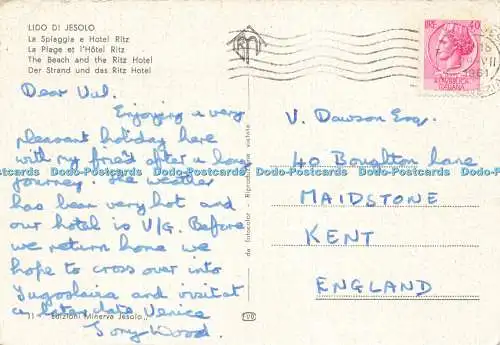 LIDO DI JESOLO
La Spiaggia e Hotel Ritz
La Plage et l'Hôtel Ritz
The Beach and the Ritz Hotel
Der Strand und das Ritz Hotel
Dear Val.
Enjoying a very
pleasant holiday here
with my friend after a long
journey. The weather
has been very hot and
our hotel is V/G. Before
we return home we
hope to cross over into
Yugoslavia and visit at
a later date Venice
Tony Wood.
Edizioni Minerva Jesolo
da fotocolor - Riproduzione vietata
LIRE 40
REPUBBLICA
ITALIANA
1961
V. Dawson Esq.
40 Boughton Lane
MAIDSTONE
KENT
ENGLAND
Dodo-Postcards Dodo-Postcards Dodo-Postcards Dodo-Postcards Dodo-Postcards